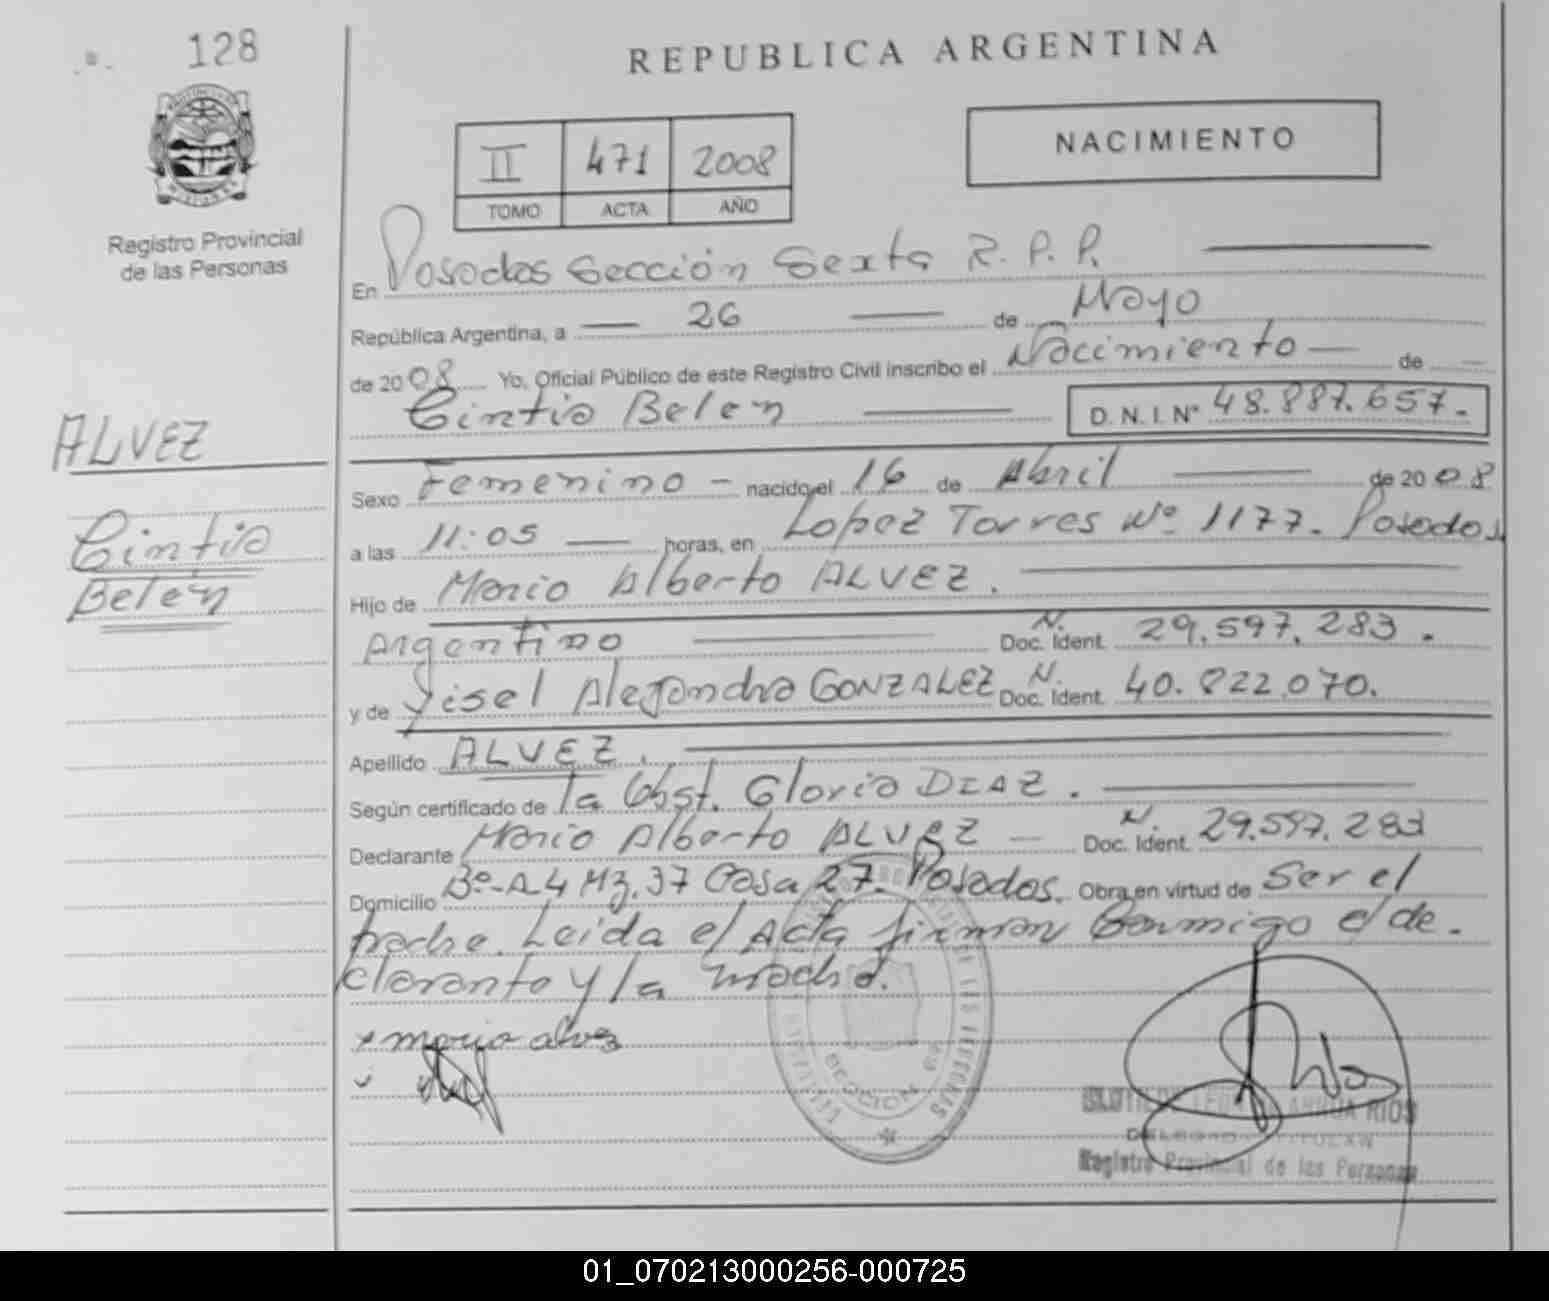 128
REPUBLICA ARGENTINA
II 471 2008
TOMO ACTA AÑO
NACIMIENTO
Registro Provincial
de las Personas
En Posadas Sección Sexta R.P.P.
República Argentina, a 26 de Mayo
de 2008 Yo, Oficial Público de este Registro Civil inscribo el Nacimiento de
Cintia Belen D.N.I. Nº 48.887.657.
ALVEZ
Cintia
Belén
Sexo Femenino - nacido el 16 de Abril de 2008
a las 11:05 horas, en Lopez Torres Nº 1177. Posadas
Hijo de Mario Alberto ALVEZ.
Argentino N. Doc. Ident. 29.597.283.
y de Yisel Alejandra GONZALEZ N. Doc. Ident. 40.822.070.
Apellido ALVEZ.
Según certificado de la Obst. Gloria DIAZ.
Declarante Mario Alberto ALVEZ N. Doc. Ident. 29.597.283
Domicilio Bº-A4 Mz.37 Casa 27. Posadas. Obra en virtud de Ser el
padre. Leida el Acta firman Conmigo el de-
clarante y la madre.
x mario alvez
SECCION
DELEGADA TITULAR
Registro Provincial de las Personas
01_070213000256-000725